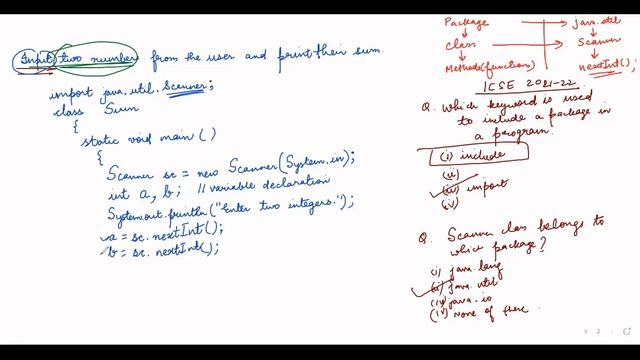 Input two number from the user and print their sum.
import java.util.Scanner;
class Sum
{
static void main()
{
Scanner sc = new Scanner(System.in);
int a, b; // variable declaration
System.out.println("Enter two integers.");
a = sc.nextInt();
b = sc.nextInt();
Package java.util
class Scanner
Methods(functions) nextInt();
ICSE 2021-22
Q. Which keyword is used
to include a package in
a program.
(i) include
(ii)
(iii) import
(iv)
Q. Scanner class belongs to
which package?
(i) java.lang
(ii) java.util
(iii) java.io
(iv) None of these.
2